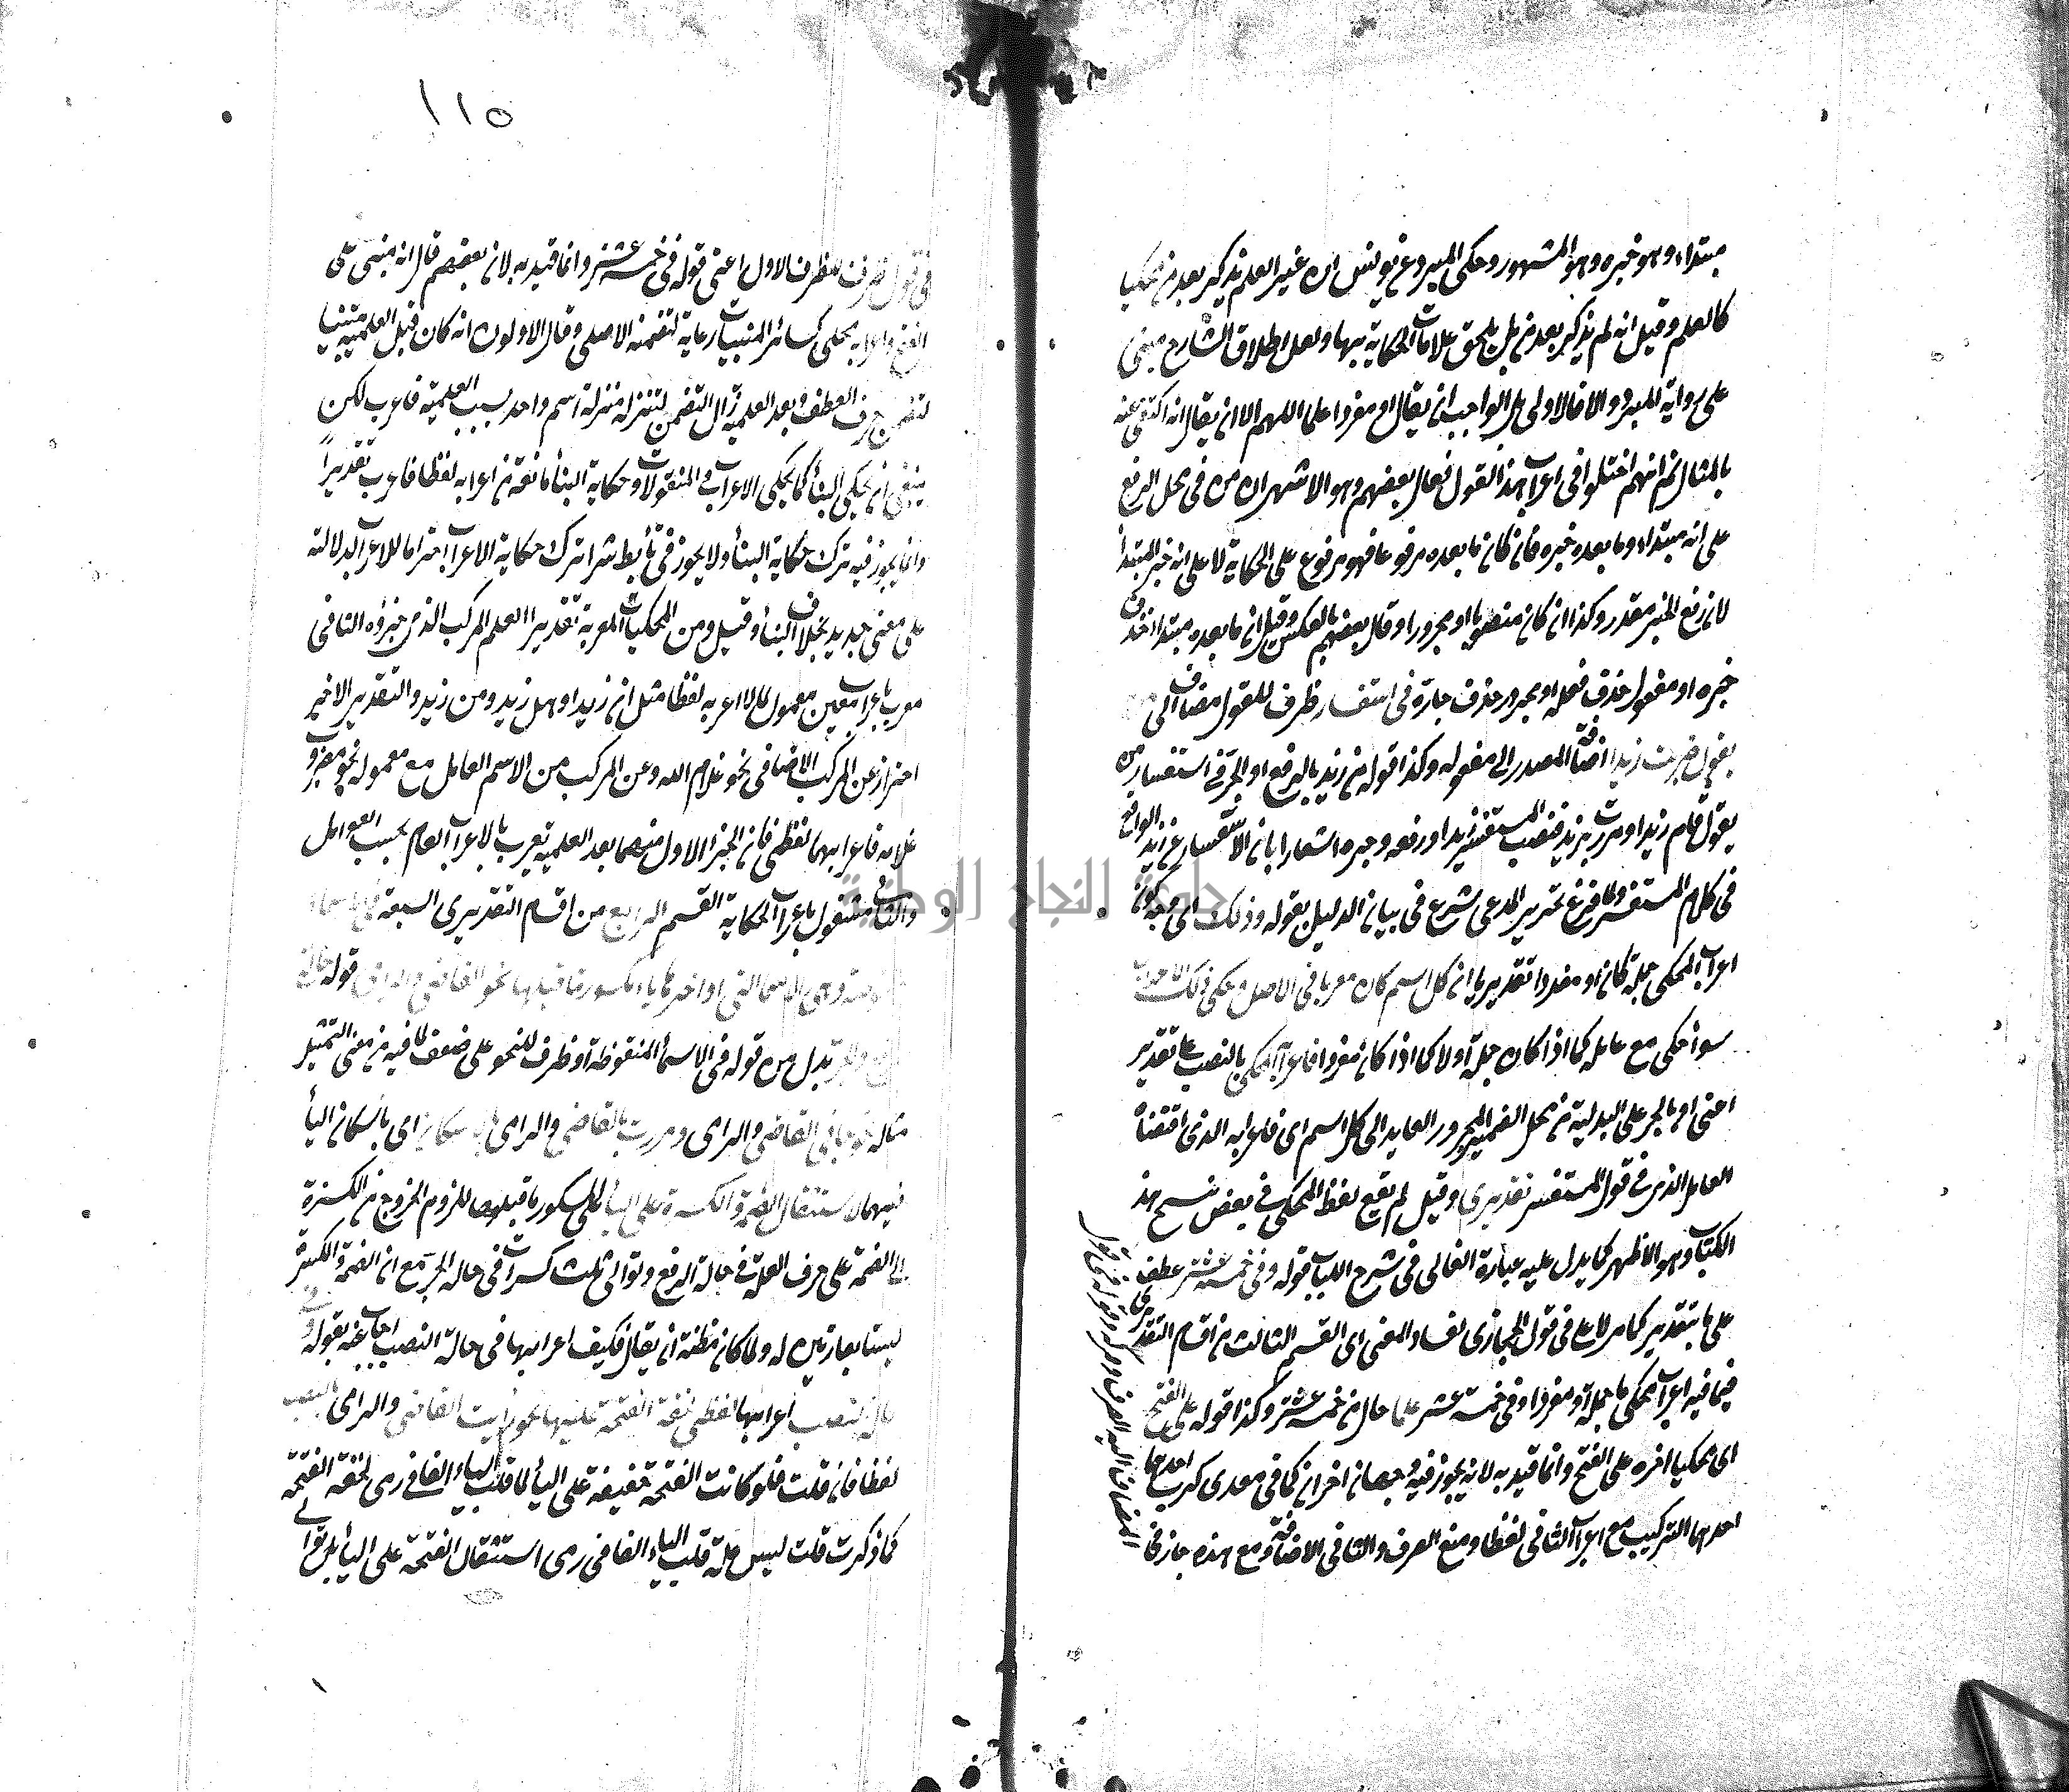 مبتداء وهو خبره وهو المشهور وحكى المبرد عن يونس ان غير العلم يذكر بعد من محكيا
كالعلم وقيل انه لم يذكر بعد من بل يلحق علامات الحكاية بها ولعل اطلاق الشارح مبنى
على رواية المبرد والا فالاولى بل الواجب ان يقال او مفردا علما اللهم الا ان يقال انه اكتفى عنه
بالمثال ثم انهم اختلفوا فى اعراب هذا القول فقال بعضهم وهو الاشهر ان من فى محل الرفع
على انه مبتداء وما بعده خبره فان كان ما بعده مرفوعا فهو مرفوع على الحكاية لا على انه خبر المبتدأ
لان رفع الخبر مقدر وكذا ان كان منصوبا او مجرورا وقال بعضهم بالعكس وقيل ان ما بعده مبتدا حذف
خبره او مفعول حذف فعله او مجرور حذف جاره فى استفسار ظرف للقول مضاف الى من
يقول ضربت زيدا اضافة المصدر الى مفعوله وكذا قوله من زيد بالرفع او الجر فى استفسار من
يقول قام زيد او مررت بزيد فنصب المستفسر زيدا ورفعه وجره اشعارا بان الاستفسار عن زيد الواقع
فى كلام المستفسر ولما فرغ تحرير المدعى شرع فى بيان الدليل بقوله وذلك اى وجه كون
اعراب المحكى جملة كان او مفردا تقديريا ان كل اسم كان معربا فى الاصل وحكى ذلك الاعراب
سواء حكى مع عامله كما اذا كان جملة او لا كما اذا كان مفردا فاعراب المحكى بالنصب على تقدير
اعنى او بالجر على البدلية من محل الضمير المجرور العايد الى كل اسم اى فاعرابه الذى اقتضاه
العامل الذى فى قول المستفسر تقديرى وقيل لم يقع لفظ المحكى فى بعض نسخ هذا
الكتاب وهو الاظهر كما يدل عليه عبارة الفالى فى شرح اللباب قوله وفى خمسة عشر عطف
على ما بتقدير كما مر لا على فى قول الحجازى لفساد المعنى اى القسم الثالث من اقسام التقديرى
فيما فيه اعراب محكى ما جملة او مفردا وفى خمسة عشر علما حال من خمسة عشر وكذا قوله على الفتح
اى محكيا اخره على الفتح وانما قيد به لانه يجوز فيه وجهان اخران كما فى معدى كرب احدهما
احدهما التركيب مع اعراب الثانى لفظا ومنع الصرف والثانى الاضافة ومع هذه جاز فى
المضاف اليه الصرف وتركه وقوله فى قول
١١٥
فى قول ظرف للظرف الاول اعنى قوله فى خمسة عشر وانما قيد به لان بعضهم قال انه مبنى على
الفتح واعرابه محلى كسائر المبنيات رعاية لتضمنه الاصلى وقال الاولون انه كان قبل العلمية مبنيا
لتضمن حرف العطف وبعد العلمية زال التضمن لتنزله منزلة اسم واحد بسبب العلمية فاعرب لكن
ينبغى ان يحكى البناء كما يحكى الاعراب فى المنقولات وحكاية البناء مانعة من اعرابه لفظا فاعرب تقديراً
وانما يجوز فيه ترك حكاية البناء ولا يجوز فى تأبط شرا ترك حكاية الاعراب احتراما للاعراب لدلالته
على معنى جديد بخلاف البناء وقيل ومن المحكيات المعربة تقديرا العلم المركب الذى جزؤه الثانى
معرب باعراب معين معمول للاول اعربه لفظا مثل ان زيدا وهل زيد ومن زيد والتقدير الاخير
احتراز عن المركب الاضافى نحو غلام الله وعن المركب من الاسم العامل مع معموله نحو مضروب
غلامه فاعرابهما لفظى فان الجزء الاول منهما بعد العلمية يعرب بالاعراب العام بحسب العوامل
والثانى مشغول باعراب الحكاية القسم الرابع من اقسام التقديرى السبعة فى الاسماء
المنقوصة وهى الاسماء التى اواخرها ياء مكسور ما قبلها نحو القاضى والرامى قوله حالة
الرفع والجر بدل من قوله فى الاسماء المنقوصة او ظرف للنحو على ضعف لما فيه من معنى التمثيل
مثاله نحو جاءنى القاضى والرامى ومررت بالقاضى والرامى بالاسكان اى باسكان الياء
فيهما لاستثقال الضمة والكسرة على الياء المكسور ما قبلها للزوم الخروج من الكسرة
الى الضمة على حرف العلة فى حالة الرفع وتوالى ثلث كسرات فى حالة الجر مع ان الضمة والكسرة
ليستا بعارتين له ولما كان مظنة ان يقال فكيف اعرابها فى حالة النصب اجاب عنه بقوله وفى
حال النصب اعرابها لفظى لخفة الفتحة عليها نحو رأيت القاضى والرامى بالنصب
لفظا فان قلت فلو كانت الفتحة خفيفة على الياء لما قلبت الياء الفا فى رمى لخفة الفتحة
كما ذكرت قلت ليس علة قلب الياء الفا فى رمى استثقال الفتحة على الياء بل توالى
جامعة النجاح الوطنية